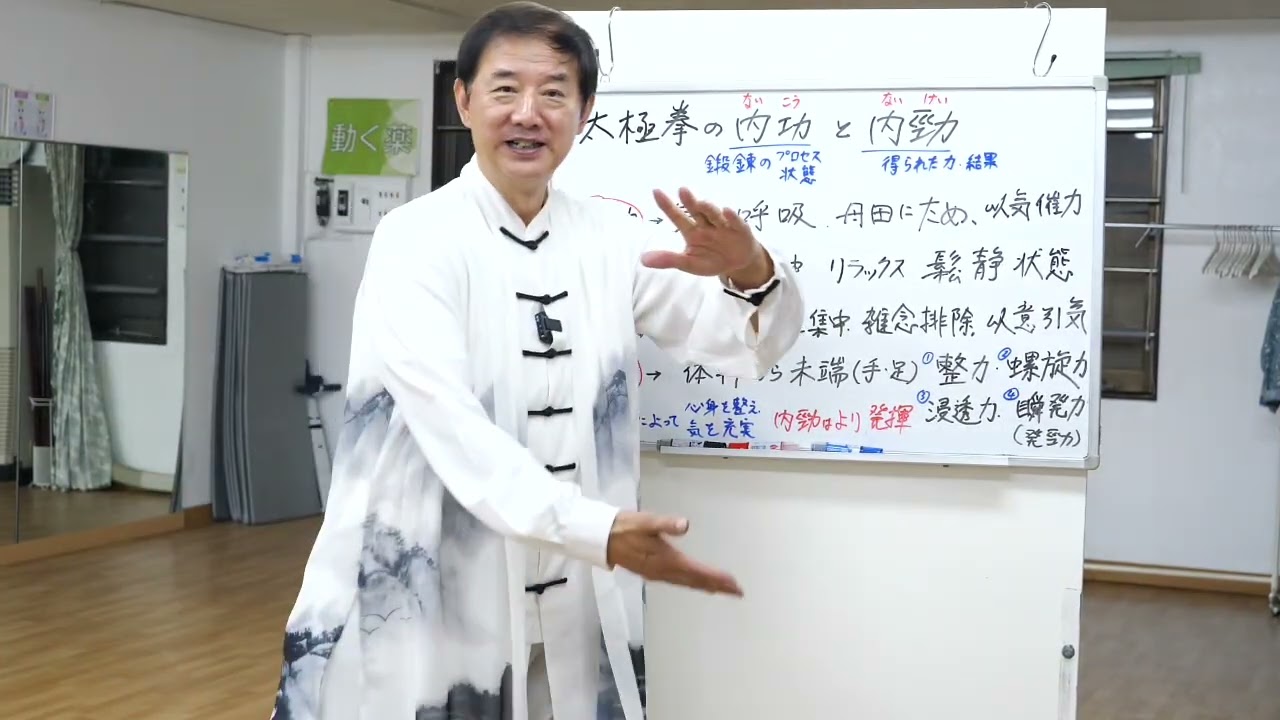 動く薬
ない こう ない けい
太極拳の内功と内勁
鍛錬のプロセス 得られた力・結果
状態
→ 呼吸、丹田にため、以気催力
リラックス 鬆静状態
集中、雑念排除、以意引気
→ 体 ら末端(手・足) ①整力・②螺旋力
によって 心身を整え、 内勁はより発揮 ③浸透力・④瞬発力
気を充実 (発勁力)